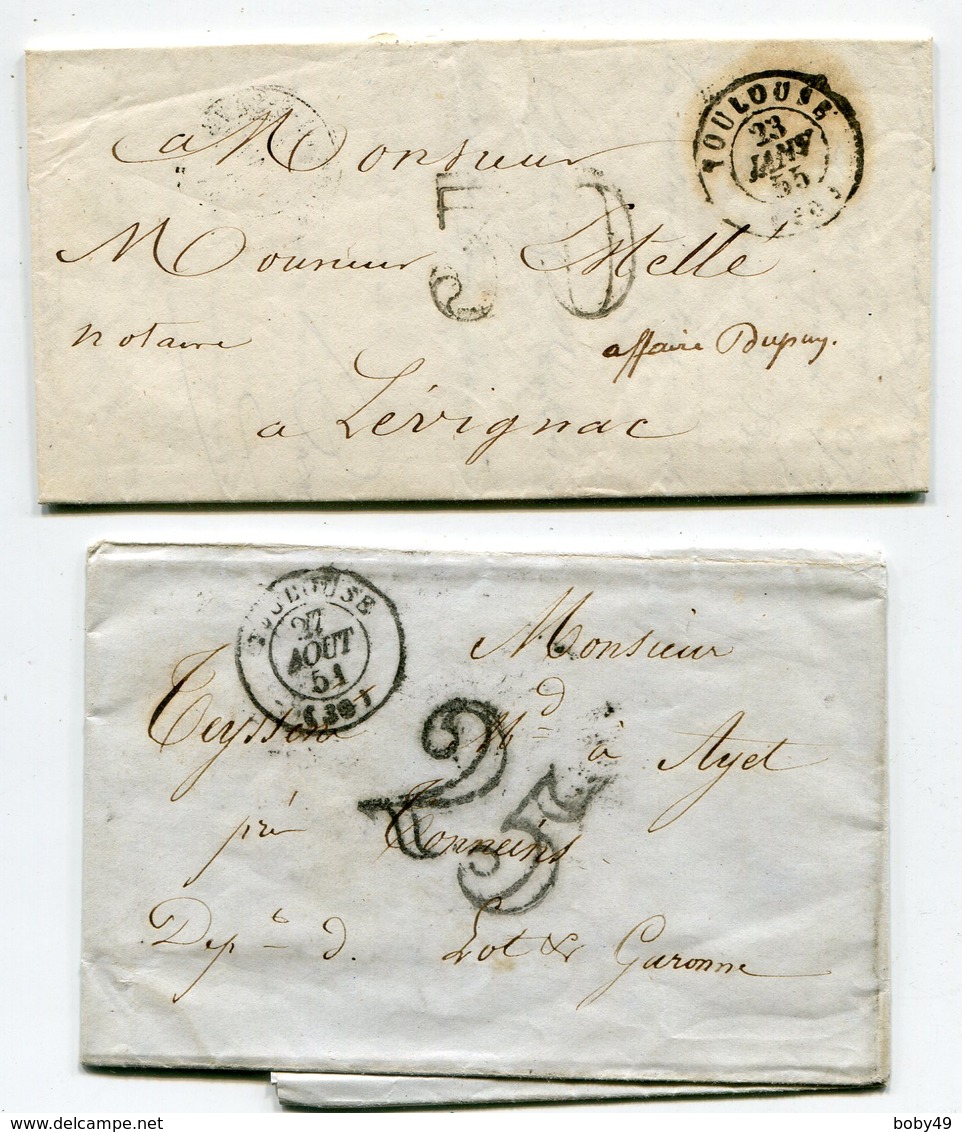 TOULOUSE
23
JANV
55
a Monsieur
30
Monsieur Melle
notaire
affaire Dupuy.
a Lévignac
TOULOUSE
27
AOUT
51
(30)
Monsieur
Teyssere Md à Ayet
25
près Tonneins
Dept d. Lot & Garonne
boby49